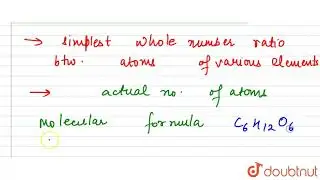 → simplest whole number ratio
btw. atoms of various elements
→ actual no. of atoms
Molecular formula C₆H₁₂O₆
doubtnut